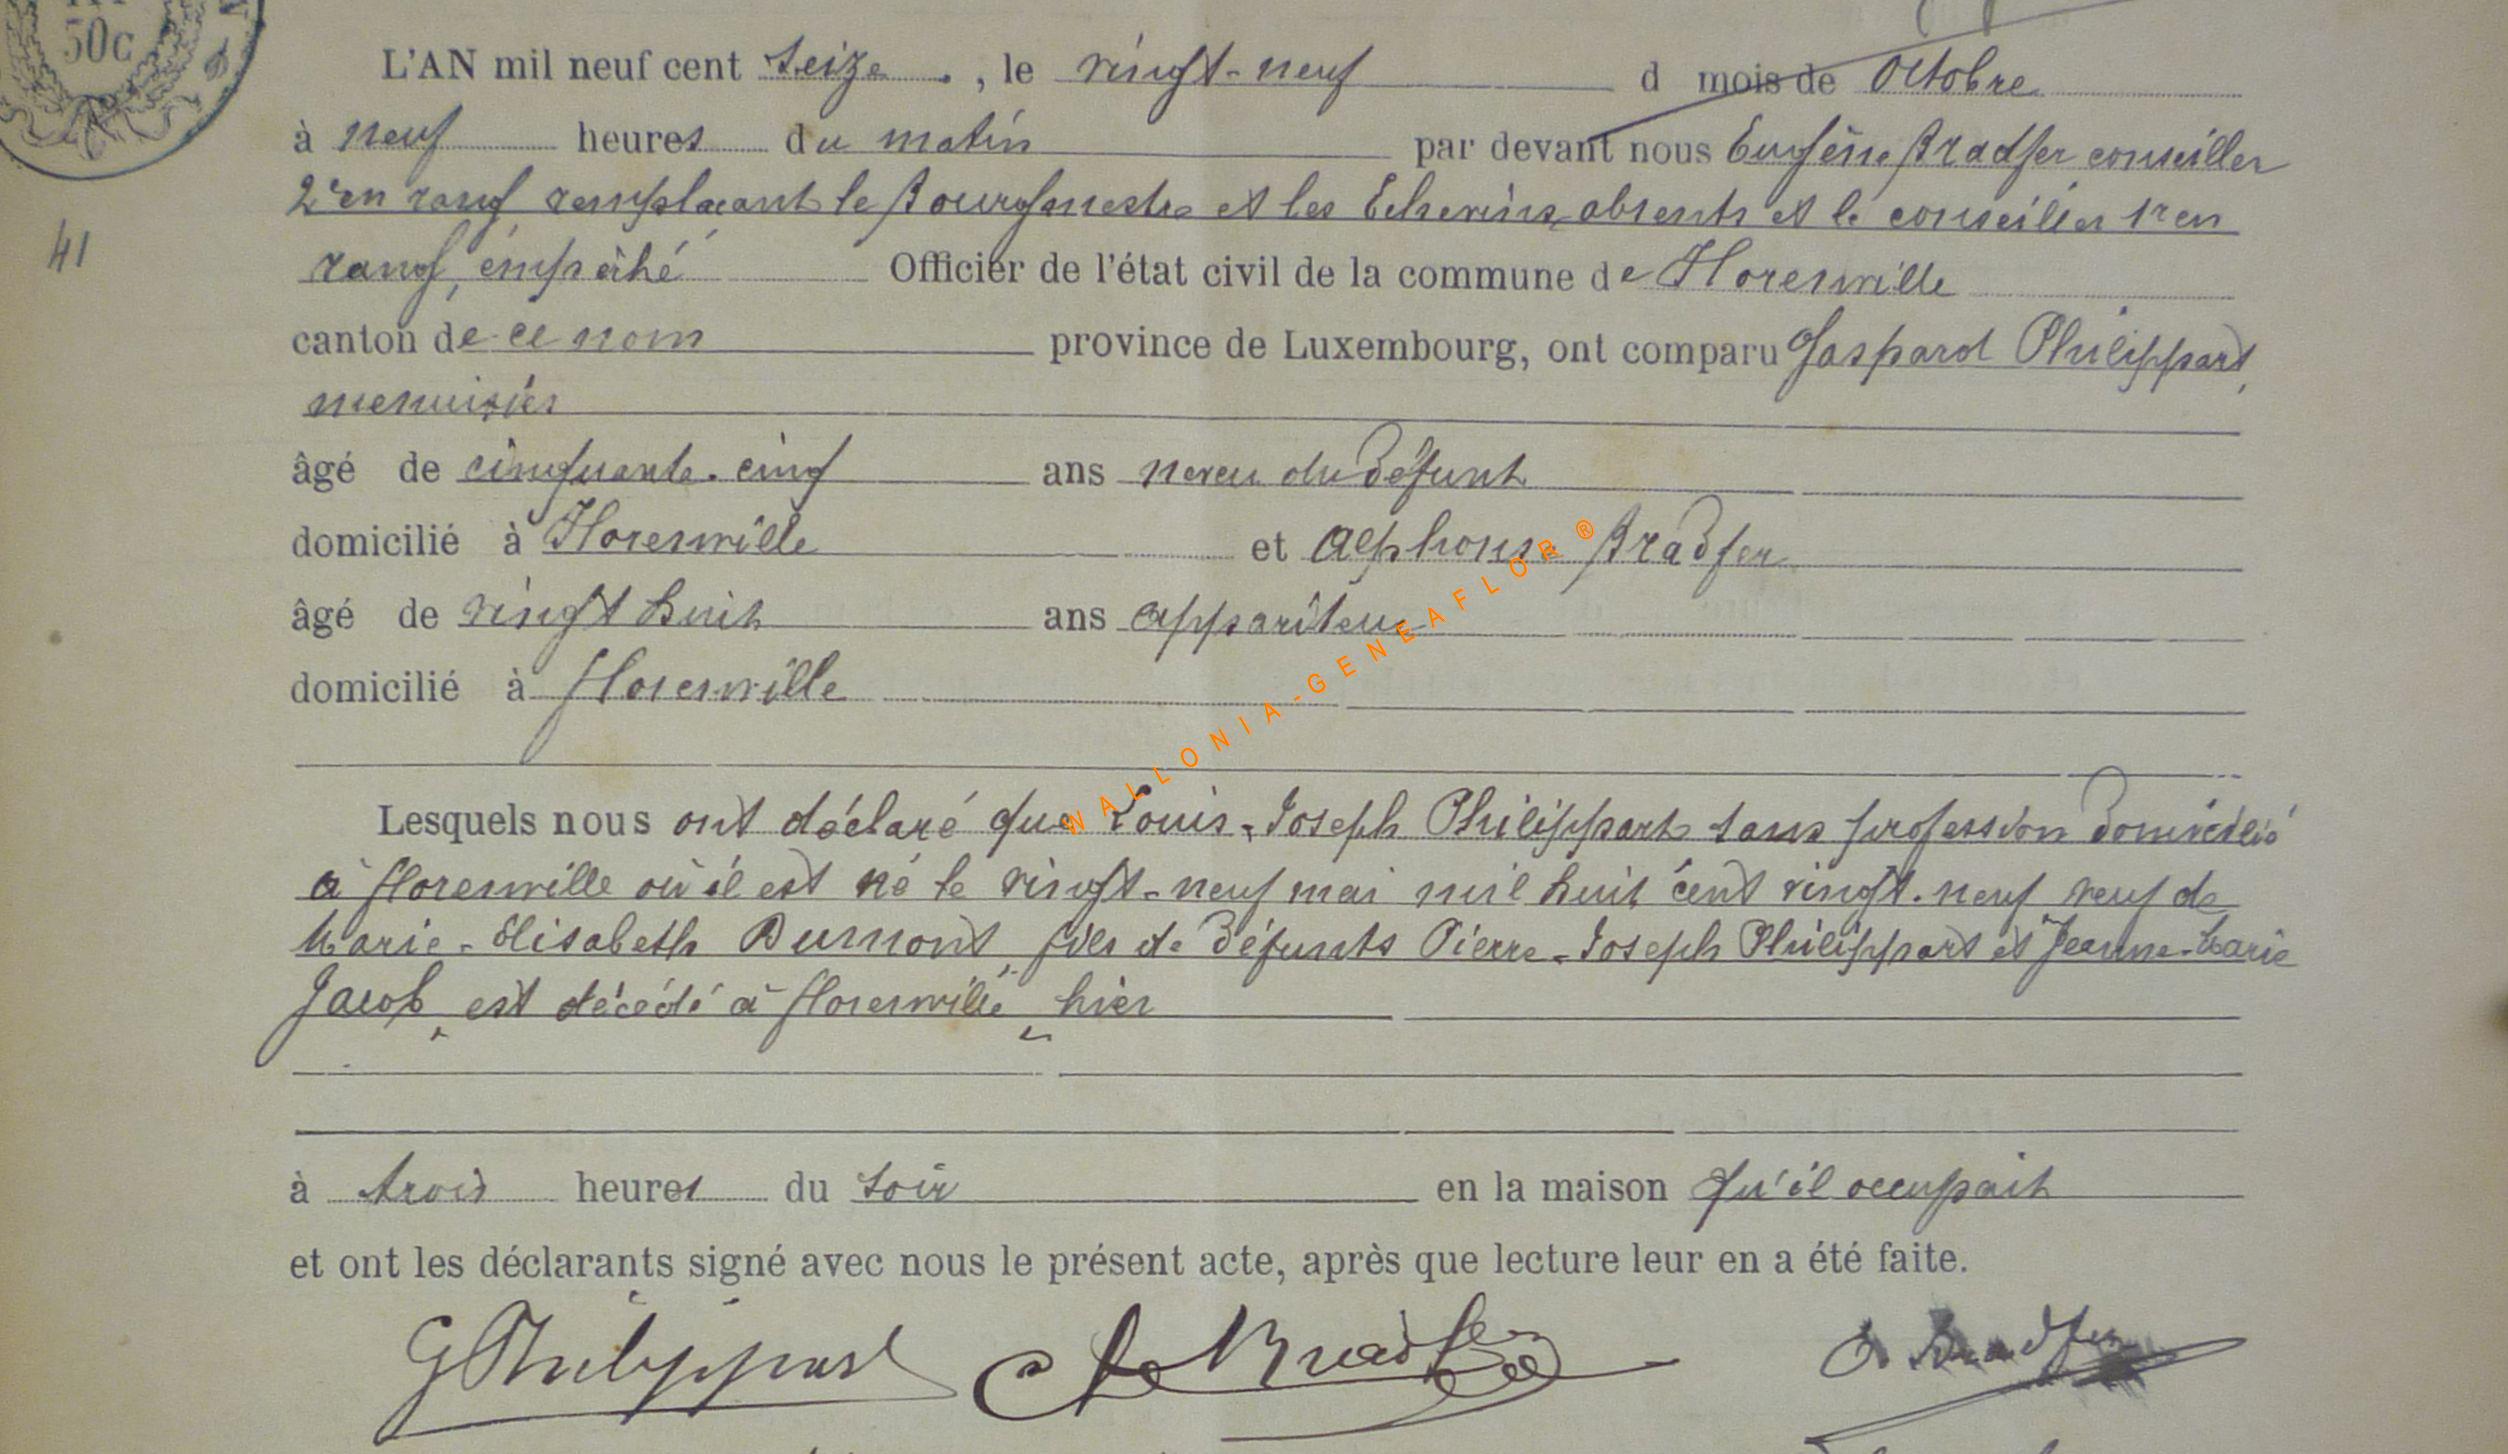 50c
L'AN mil neuf cent seize , le vingt-neuf d mois de Octobre
à neuf heures du matin par devant nous Eugène Bradfer conseiller
2e en rang remplaçant le Bourgmestre et les Echevins absents et le conseiller 1r en
41
rang, empêché Officier de l'état civil de la commune de Florenville
canton de ce nom province de Luxembourg, ont comparu Gaspard Philippart,
menuisier
âgé de cinquante-cinq ans neveu du défunt
domicilié à Florenville et Alphonse Bradfer
âgé de vingt huit ans appariteur
domicilié à Florenville
WALLONIA-GENEAFLOR ®
Lesquels nous ont déclaré que Louis-Joseph Philippart sans profession domicilié
à Florenville où il est né le vingt-neuf mai mil huit cent vingt-neuf veuf de
Marie-Elisabeth Dumont, fils de défunts Pierre-Joseph Philippart et Jeanne-Marie
Jacob, est décédé à Florenville, hier
à trois heures du soir en la maison qu'il occupait
et ont les déclarants signé avec nous le présent acte, après que lecture leur en a été faite.
G Philippart Bradfer Bradfer